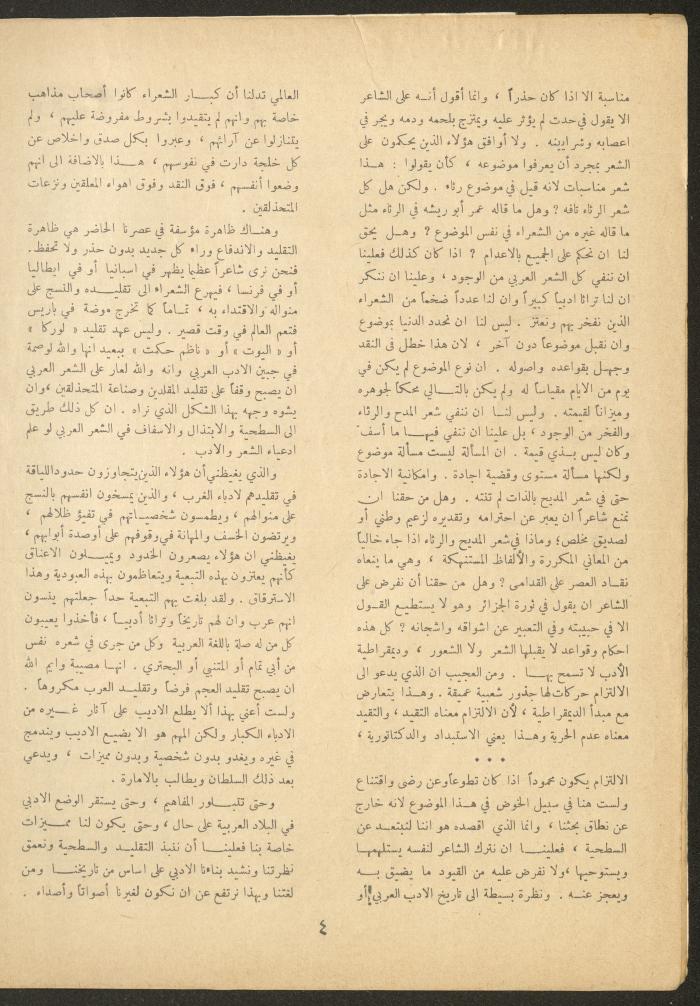 مناسبة الا اذا كان حذراً ، وانما أقول أنه على الشاعر
الا يقول في حدث لم يؤثر عليه ويمتزج بلحمه ودمه ويجر في
اعصابه وشرايينه . ولا أوافق هؤلاء الذين يحكمون على
الشعر بمجرد أن يعرفوا موضوعه ، كأن يقولوا : هذا
شعر مناسبات لانه قيل في موضوع رثاء . ولكن هل كل
شعر الرثاء تافه ؟ وهل ما قاله عمر أبو ريشه في الرثاء مثل
ما قاله غيره من الشعراء في نفس الموضوع ؟ وهل يحق
لنا ان نحكم على الجميع بالاعدام ؟ اذا كان كذلك فعلينا
ان ننفي كل الشعر العربي من الوجود ، وعلينا ان ننكر
ان لنا تراثا ادبياً كبيراً وان لنا عدداً ضخماً من الشعراء
الذين نفخر بهم ونعتز . ليس لنا ان نحدد الدنيا بموضوع
وان نقبل موضوعاً دون آخر ، لان هذا خطل في النقد
وجهل بقواعده واصوله . ان نوع الموضوع لم يكن في
يوم من الايام مقياساً له ولم يكن بالتالي محكاً لجوهره
وميزاناً لقيمته . وليس لنا ان ننفي شعر المدح والرثاء
والفخر من الوجود ، بل علينا ان ننفي فيها ما أسف
وكان ليس بذي قيمة . ان المسألة ليست مسألة موضوع
ولكنها مسألة مستوى وقضية اجادة . وامكانية الاجادة
حتى في شعر المديح بالذات لم تفته . وهل من حقنا ان
نمنع شاعراً ان يعبر عن احترامه وتقديره لزعيم وطني أو
لصديق مخلص؛ وماذا في شعر المديح والرثاء اذا جاء خالياً
من المعاني المكررة والألفاظ المستنهكة ، وهي ما ينعاه
نقاد العصر على القدامى ؟ وهل من حقنا أن نفرض على
الشاعر ان يقول في ثورة الجزائر وهو لا يستطيع القول
الا في حبيبته وفي التعبير عن اشواقه واشجانه ؟ كل هذه
احكام وقواعد لا يقبلها الشعر ولا الشعور ، وديمقراطية
الأدب لا تسمح بها . ومن العجيب ان الذي يدعو الى
الالتزام حركات لها جذور شعبية عميقة . وهذا يتعارض
مع مبدأ الديمقراطية ، لأن الالتزام معناه التقيد ، والتقيد
معناه عدم الحرية وهذا يعني الاستبداد والدكتاتورية ،
• • •
الالتزام يكون محموداً اذا كان تطوعاً وعن رضى واقتناع
ولست هنا في سبيل الخوض في هذا الموضوع لانه خارج
عن نطاق بحثنا ، وانما الذي اقصده هو اننا لنبتعد عن
السطحية ، فعلينا ان نترك الشاعر لنفسه يستلهمها
ويستوحيها ، ولا نفرض عليه من القيود ما يضيق به
ويعجز عنه . ونظرة بسيطة الى تاريخ الادب العربي أو
العالمي تدلنا أن كبار الشعراء كانوا أصحاب مذاهب
خاصة بهم وانهم لم يتقيدوا بشروط مفروضة عليهم ، ولم
يتنازلوا عن آرائهم ، وعبروا بكل صدق واخلاص عن
كل خلجة دارت في نفوسهم ، هذا بالاضافة الى انهم
وضعوا أنفسهم ، فوق النقد وفوق اهواء المعلقين ونزعات
المتحذلقين .
وهناك ظاهرة مؤسفة في عصرنا الحاضر هي ظاهرة
التقليد والاندفاع وراء كل جديد بدون حذر ولا تحفظ.
فنحن نرى شاعراً عظيما يظهر في اسبانيا أو في ايطاليا
أو في فرنسا ، فيهرع الشعراء الى تقليده والنسج على
منواله والاقتداء به ، تماماً كما تخرج موضة في باريس
فتعم العالم في وقت قصير . وليس عهد تقليد « لوركا »
أو « اليوت » أو « ناظم حكت » ببعيد انها والله لوصمة
في جبين الادب العربي وانه والله لعار على الشعر العربي
ان يصبح وقفاً على تقليد المقلدين وصناعة المتحذلقين ، وان
يشوه وجهه بهذا الشكل الذي نراه . ان كل ذلك طريق
الى السطحية والابتذال والاسفاف في الشعر العربي لو علم
ادعياء الشعر والادب .
والذي يغيظني أن هؤلاء الذين يتجاوزون حدود اللباقة
في تقليدهم لادباء الغرب ، والذين يمسخون انفسهم بالنسج
على منوالهم ، ويطمسون شخصياتهم في تفيؤ ظلالهم ،
ويرتضون الخسف والمهانة في وقوفهم على أوصدة أبوابهم ،
يغيظني ان هؤلاء يصعرون الخدود ويميلون الاعناق
كأنهم يعتزون بهذه التبعية ويتعاظمون بهذه العبودية وهذا
الاسترقاق . ولقد بلغت بهم التبعية حداً جعلتهم ينسون
انهم عرب وان لهم تاريخاً وتراثا أدبياً ، فأخذوا يعيبون
كل من له صلة باللغة العربية وكل من جرى في شعره نفس
من أبي تمام أو المتنبي أو البحتري . انها مصيبة وايم الله
ان يصبح تقليد العجم فرضاً وتقليد العرب مكروهاً .
ولست أعني بهذا ألا يطلع الاديب على آثار غيره من
الادباء الكبار ولكن المهم هو الا يضيع الاديب ويندمج
في غيره ويغدو بدون شخصية وبدون مميزات ، ويدعي
بعد ذلك السلطان ويطالب بالامارة .
وحتى تتبلور المفاهيم ، وحتى يستقر الوضع الادبي
في البلاد العربية على حال ، وحتى يكون لنا مميزات
خاصة بنا فعلينا أن ننبذ التقليد والسطحية ونعمق
نظرتنا ونشيد بناءنا الادبي على اساس من تاريخنا ومن
لغتنا وبهذا نرتفع عن ان نكون لغيرنا أصواتاً وأصداء .
٤